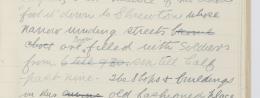 down to Shrewton where
narrow winding streets
are filled with soldiers
from till half
past nine. The shops & buildings
in this old fashioned place